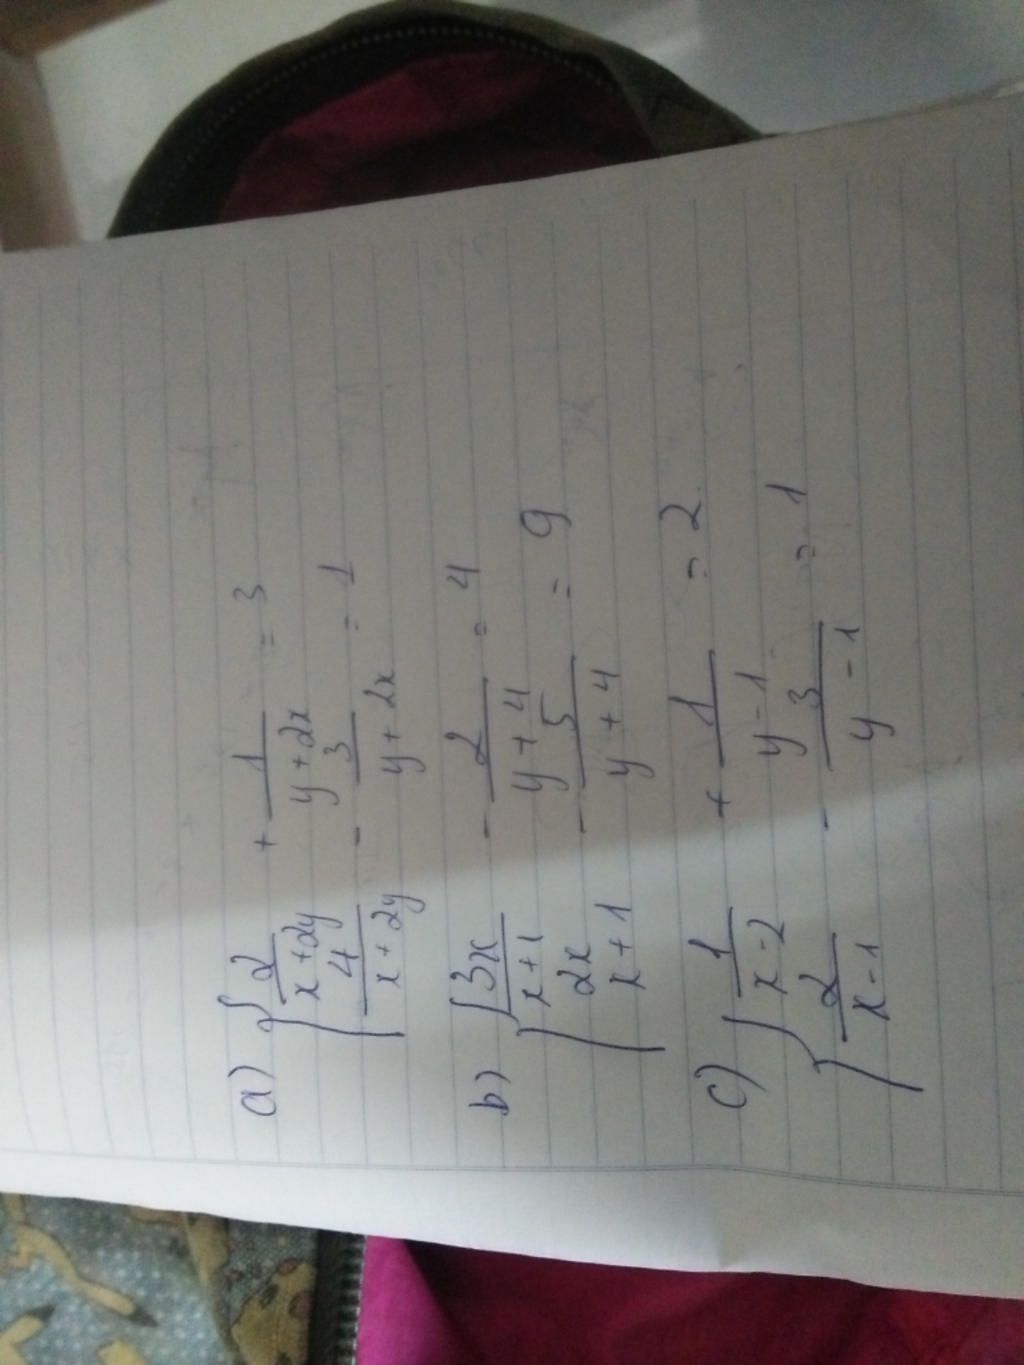 a) { 2/(x+2y) + 1/(y+2x) = 3
4/(x+2y) - 3/(y+2x) = 1
b) { 3x/(x+1) - 2/(y+4) = 4
2x/(x+1) - 5/(y+4) = 9
c) { 1/(x-2) + 1/(y-1) = 2
2/(x-1) - 3/(y-1) = 1